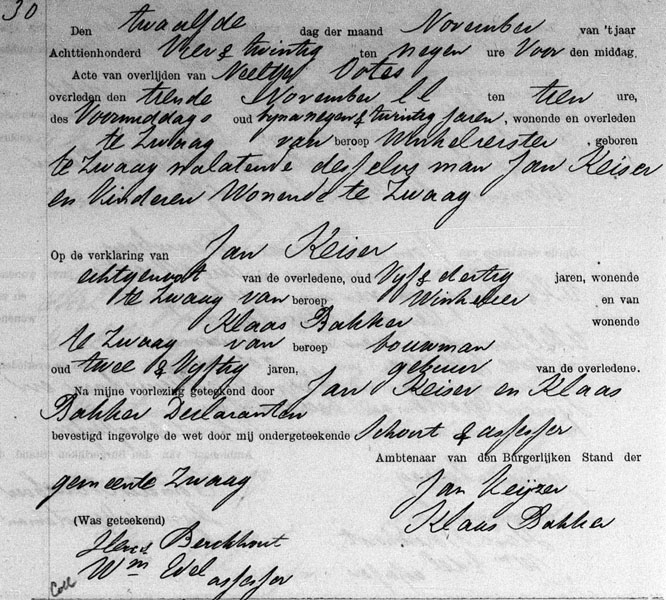 30
Den twaalfde dag der maand November van 't jaar
Achttienhonderd Vier & twintig ten negen ure Voor den middag.
Acte van overlijden van Neeltje Votes
overleden den tiende November ll ten tien ure,
des Voormiddags oud bynanegen & twintig jaren, wonende en overleden
te Zwaag van beroep Winkelierster geboren
te Zwaag nalatende desselvs man Jan Keiser
en kinderen Wonende te Zwaag
Op de verklaring van Jan Keiser
echtgenoot van de overledene, oud Vyf & dertig jaren, wonende
te Zwaag van beroep Winkelier en van
Klaas Bakker wonende
te Zwaag van beroep bouwman
oud twee & Vyftig jaren, gebuur van de overledene.
Na mijne voorlezing geteekend door Jan Keiser en Klaas
Bakker Declaranten
bevestigd ingevolge de wet door mij ondergeteekende Schout & assessor
Ambtenaar van den Burgerlijken Stand der
gemeente Zwaag
Jan Keijzer
Klaas Bakker
(Was geteekend)
Berckhout
Wm Wel assessor
Coll